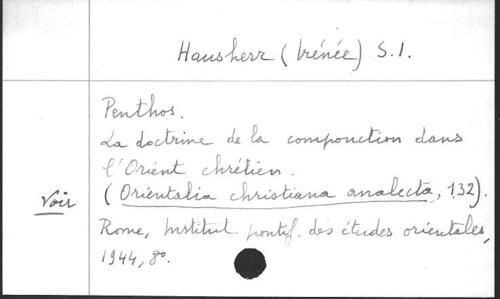 Hausherr (Irénée) S.I.
Penthos.
La doctrine de la componction dans
l'Orient chrétien.
Voir (Orientalia christiana analecta, 132).
Rome, Institut pontif. des études orientales,
1944, 8º.